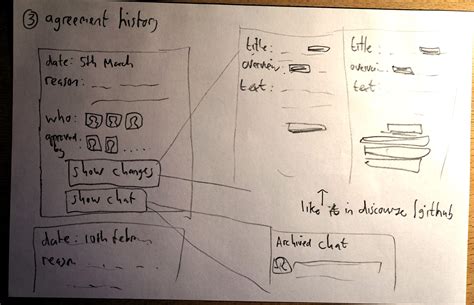 ③ agreement history
date: 5th March
reason:
who:
approved by
show changes
show chat
date: 10th febru
reason
title:
overview:
text:
title:
overview:
text:
like in discourse/github
Archived chat